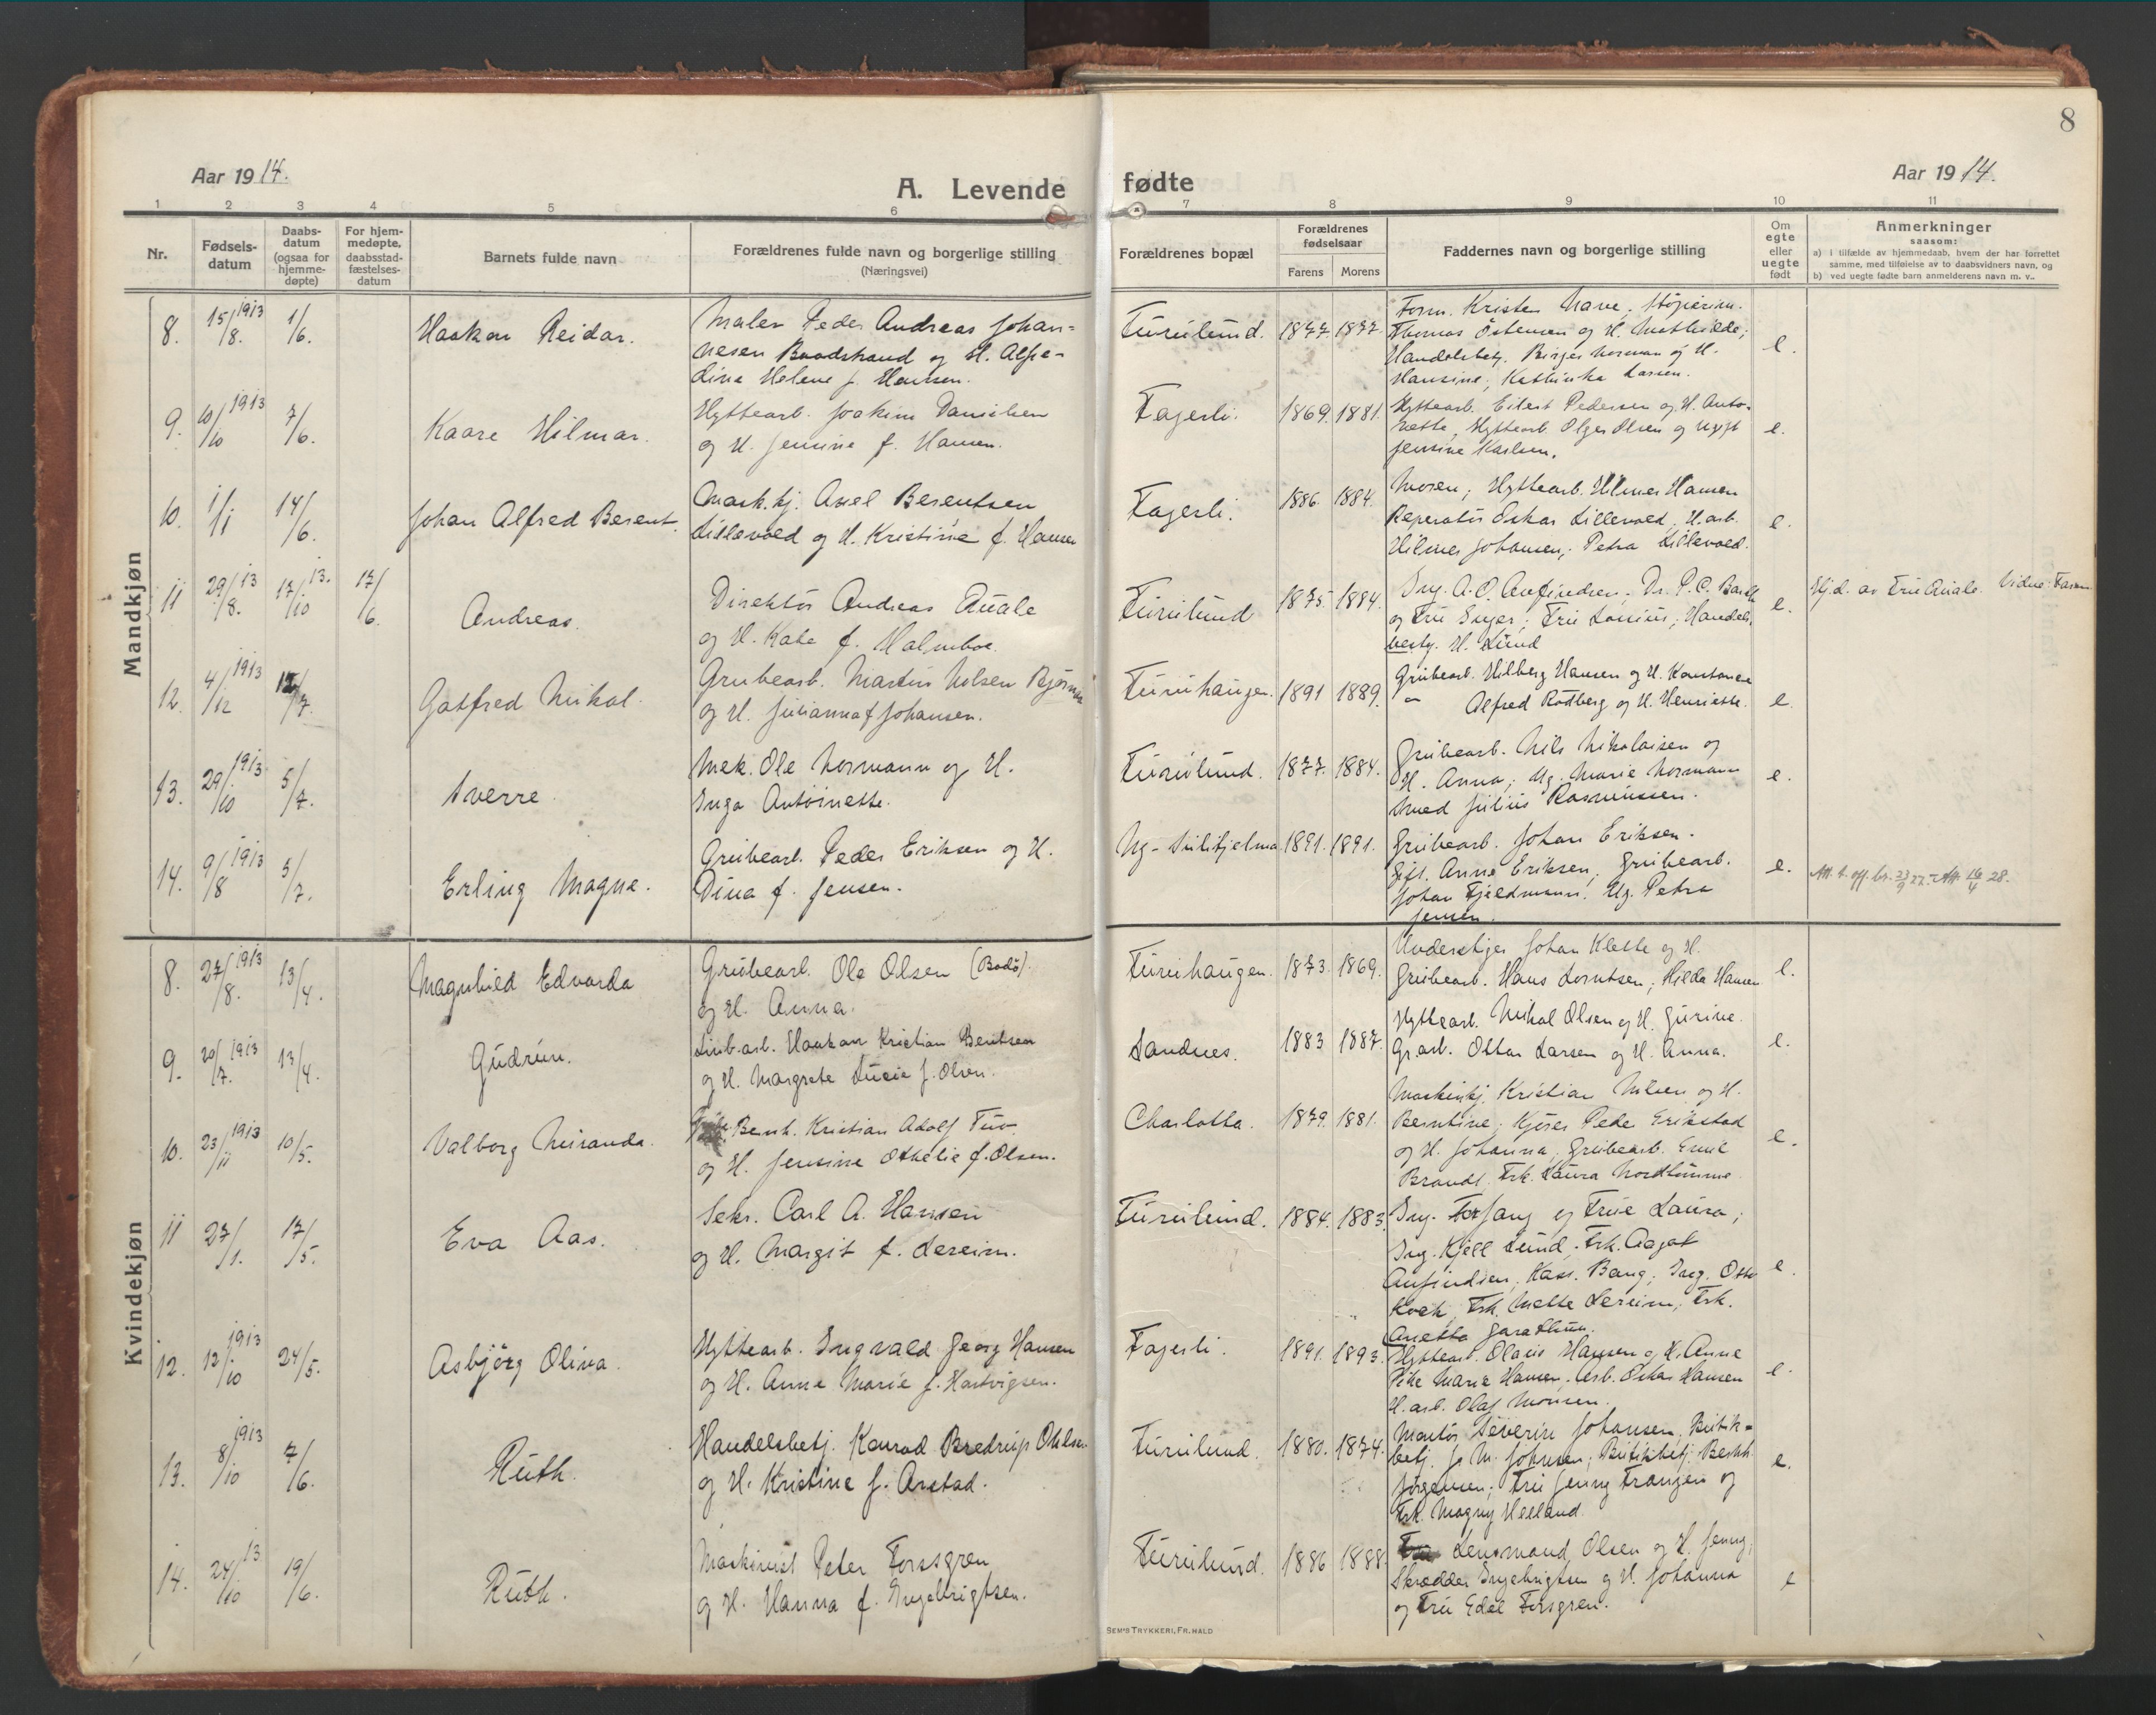 8
Aar 1914.
A. Levende fødte
Aar 1914.
1 2 3 4 5 6 7 8 9 10 11
Nr.
Fødsels-
datum
Daabs-
datum
(ogsaa for
hjemme-
døpte)
For hjem-
medøpte,
daabsstad-
fæstelses-
datum
Barnets fulde navn
Forældrenes fulde navn og borgerlige stilling
(Næringsvei)
Forældrenes bopæl
Forældrenes
fødselsaar
Farens Morens
Faddernes navn og borgerlige stilling
Om
egte
eller
uegte
født
Anmerkninger
saasom:
a) i tilfælde av hjemmedaab, hvem der har forrettet
samme, med tilføielse av to daabsvidners navn, og
b) ved uegte fødte barn anmelderens navn m. v..
Mandkjøn
8. 15/8. 1913 1/6. Haakon Reidar.
Maler Peder Andreas Johan-
nesen Baadstrand og H. Alfre-
dine Helene f. Hansen.
Furulund. 1877. 1877.
Form. Kristen Nave,
Thomas Östensen og H. Mathilde;
Handelsbetj. Birger Norman og H.
Hansine, Kathinka Larsen.
e.
9. 10/10 1913 7/6. Kaare Hilmar.
Hyttearb. Joakim Danielsen
og H. Jensine f. Hansen.
Fagerli. 1869. 1881.
Hyttearb. Eilert Pedersen og H. Anto-
nette, Hyttearb. Olger Olsen og
Jensine Karlsen.
e.
10. 1/1 14/6. Johan Alfred Berent.
Mask.kj. Axel Berentsen
Lillevold og H. Kristine f. Hansen
Fagerli. 1886. 1884.
Moren; Hyttearb. Hilmer Hansen
Reperatör Oskar Lillevold, H.arb.
Hilmer Johansen; Petra Lillevold.
e.
11 29/8. 13 17/10 13. 17/6. Andreas.
Direktör Andreas Quale
og H. Kate f. Holmboe.
Furulund 1875. 1884.
Ing. A. O. Anfindsen; Dr. P. C. Barth
og Fru Inger; Fru Lonius; Handels-
besty. H. Lund
e.
Hj.d. av Fru Quale. Vidne: Faren
12. 4/12 1913 12/7. Gotfred Nikol.
Grubearb. Martin Nilsen Bjørnli
og H. Julianna f Johansen.
Furuhaugen. 1891 1889.
Grubearb. Hilberg Hansen og H. Konstance
" Alfred Rödberg og H. Henriette.
e.
13. 29/10 1913 5/7. Sverre.
Mek. Ole Normann og H.
Inga Antoinette.
Furulund. 1877. 1884.
Grubearb. Nils Nikolaisen og
H. Anna; Ug. Marie Normann
med Julius Rasmussen.
e.
14. 9/8 1913 5/7. Erling Magne.
Grubearb. Peder Eriksen og H.
Dina f. Jensen.
Ny-Sulitjelma 1891. 1891.
Grubearb. Johan Eriksen.
Gift. Anna Eriksen, Grubearb.
Johan Fjeldmann. Ug. Petra
Jensen.
e.
Att. t. off. br. 23/9 27. - Att. 16/4 28.
Kvindekjøn
8. 27/8. 1913 13/4. Magnhild Edvarda
Grubearb. Ole Olsen (Bodö).
og H. Anna.
Furuhaugen. 1873. 1869.
Understiger Johan Klette og H.
Grubearb. Hans Lorntsen; Hilda Hansen
e.
9. 20/7. 1913 13/4. Gudrun.
Linb.arb. Haakon Kristian Bentsen
og H. Margrete Lucie f. Olsen.
Sandnes. 1883 1887.
Hyttearb. Nikal Olsen og H. Gurine.
Gr.arb. Ottar Larsen og H. Anna.
e.
10. 23/11 1913 10/5. Valborg Miranda.
Bernh. Kristian Adolf Tuv.
og H. Jensine Othelie f. Olsen.
Charlotta. 1879. 1881.
Maskinkj. Kristian Nilsen og H.
Berntine; Kjörer Peder Erikstad
og H. Johanna, Grubearb. Emil
Brandt, Frk. Laura Nordhumme.
e.
11 27/1. 17/5. Eva Aas.
Sekr. Carl A. Hansen
og H. Margit f. Lereim.
Furulund. 1884. 1883.
Ing. Torfang og Frue Laura;
Ing. Kjell Lund, Frk. Aagot
Anfindsen, Kass. Bang; Ing. Otto
Koch, Frk. Mette Lereim, Frk.
Anetta
e.
12. 12/10 1913 24/5. Asbjörg Oliva.
Hyttearb. Ingvald Georg Hansen
og H. Anna Marie f. Hartvigsen.
Fagerli. 1891. 1893.
Hyttearb. Olaus Hansen og H. Anne
Pike Marie Hansen. Arb. Oskar Hansen
H.arb. Olaf Monsen.
e.
13. 8/10 1913 7/6. Ruth.
Handelsbetj. Konrad Bredrup Ohlsen
og H. Kristine f. Arstad.
Furulund. 1880. 1874.
Montör Severin Johansen, Butik-
betj. J. M. Johnsen; Butikbetj. Bernh.
Jörgensen; Fru Jenny Frangen og
Frk. Magny Helland.
e.
14. 24/10 13 19/6. Ruth.
Maskinist Peter Forssgren
og H. Hanna f. Ingebrigtsen.
Furulund. 1886 1888.
Lensmand Olsen og H. Jenny;
Skrædder Ingebrigtsen og H. Johanna
og Fru Edel Forsgren.
e
SEM'S TRYKKERI, FR. HALD